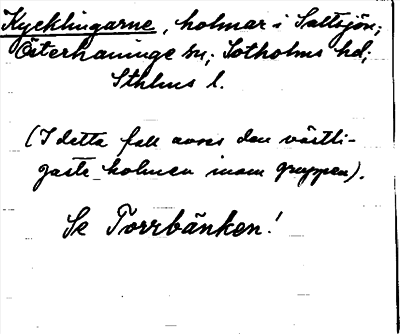 Kycklingarne, holmar i Saltsjön;
Österhaninge sn; Sotholms hd;
Sthlms l.
(I detta fall avses den västli-
gaste holmen inom gruppen).
Se Torrbänken!